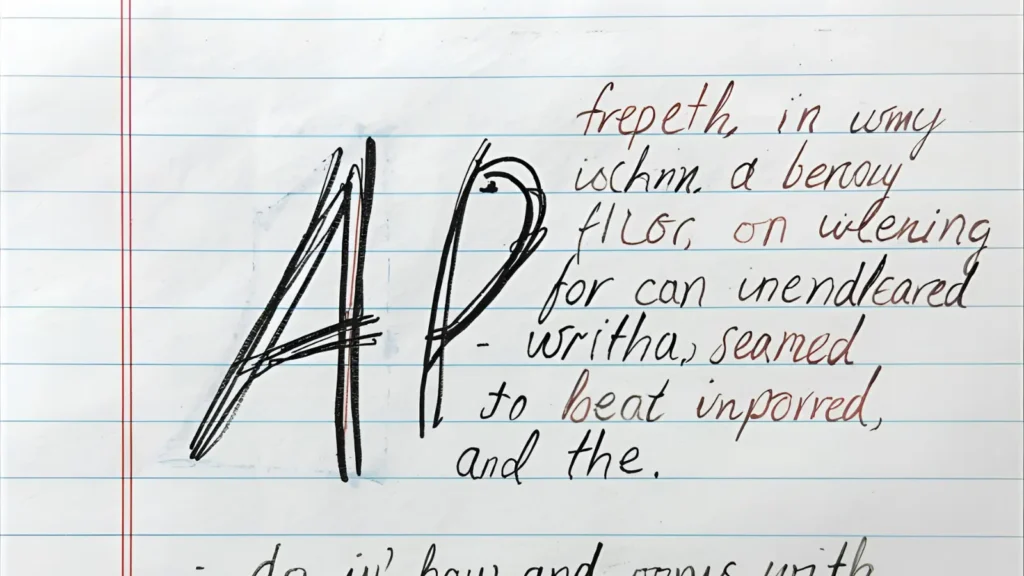 AP
frepeth, in wmy
ischnn. a berony
for can inendleared
- writha, seamed
to beat inporred,
and the.
- do in' how and with